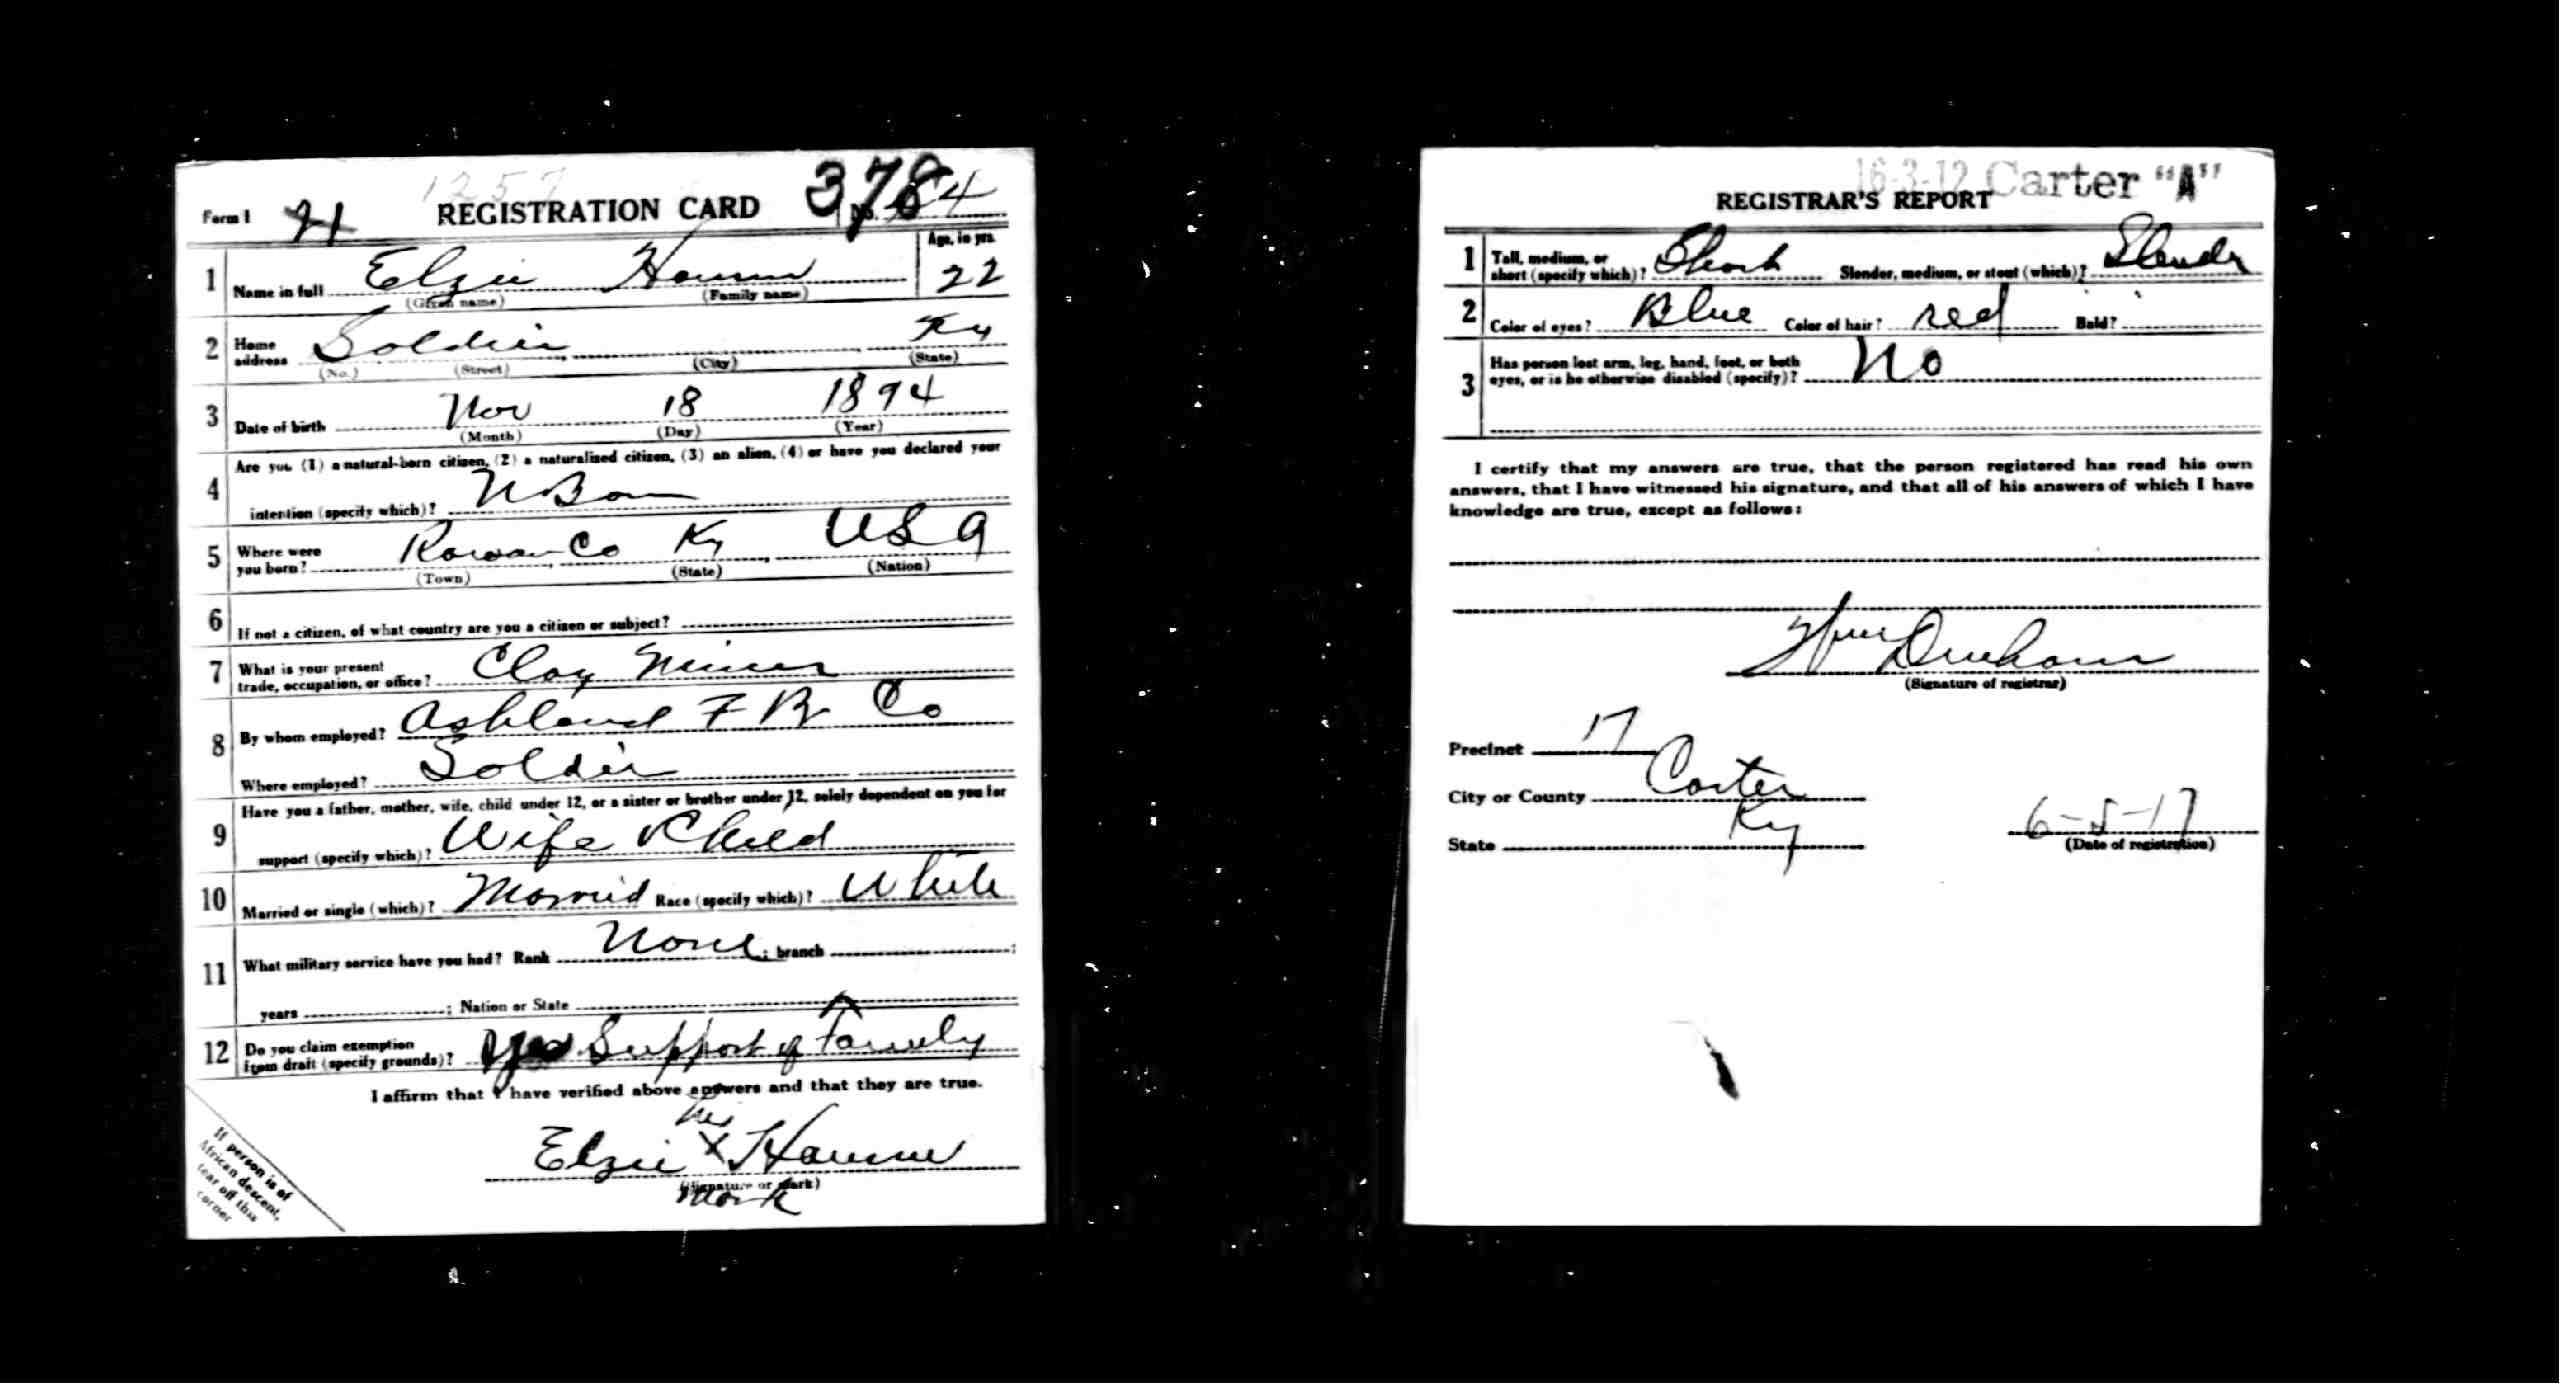 1257
Form 1 21 REGISTRATION CARD 378 No. 84
1 Name in full Elzie Hamm Age, in yrs. 22
(Given name) (Family name)
2 Home address Soldier Ky
(No.) (Street) (City) (State)
3 Date of birth Nov 18 1894
(Month) (Day) (Year)
4 Are you (1) a natural-born citizen, (2) a naturalized citizen, (3) an alien, (4) or have you declared your
intention (specify which)? N Born
5 Where were you born? Rowan Co Ky USA
(Town) (State) (Nation)
6 If not a citizen, of what country are you a citizen or subject?
7 What is your present trade, occupation, or office? Clay Miner
8 By whom employed? Ashland F Br Co
Where employed? Soldier
9 Have you a father, mother, wife, child under 12, or a sister or brother under 12, solely dependent on you for
support (specify which)? Wife & Child
10 Married or single (which)? Married Race (specify which)? White
11 What military service have you had? Rank None ; branch ;
years ; Nation or State
12 Do you claim exemption from draft (specify grounds)? Yes Support of Family
I affirm that I have verified above answers and that they are true.
his
Elzie X Hamm
(Signature or mark)
mark
If person is of
African descent,
tear off this
corner
16-3-12 Carter "A"
REGISTRAR'S REPORT
1 Tall, medium, or short (specify which)? Short Slender, medium, or stout (which)? Slender
2 Color of eyes? Blue Color of hair? red Bald?
3 Has person lost arm, leg, hand, foot, or both
eyes, or is he otherwise disabled (specify)? No
I certify that my answers are true, that the person registered has read his own
answers, that I have witnessed his signature, and that all of his answers of which I have
knowledge are true, except as follows:
Wm Durham
(Signature of registrar)
Precinct 17
City or County Carter
State Ky 6-5-17
(Date of registration)